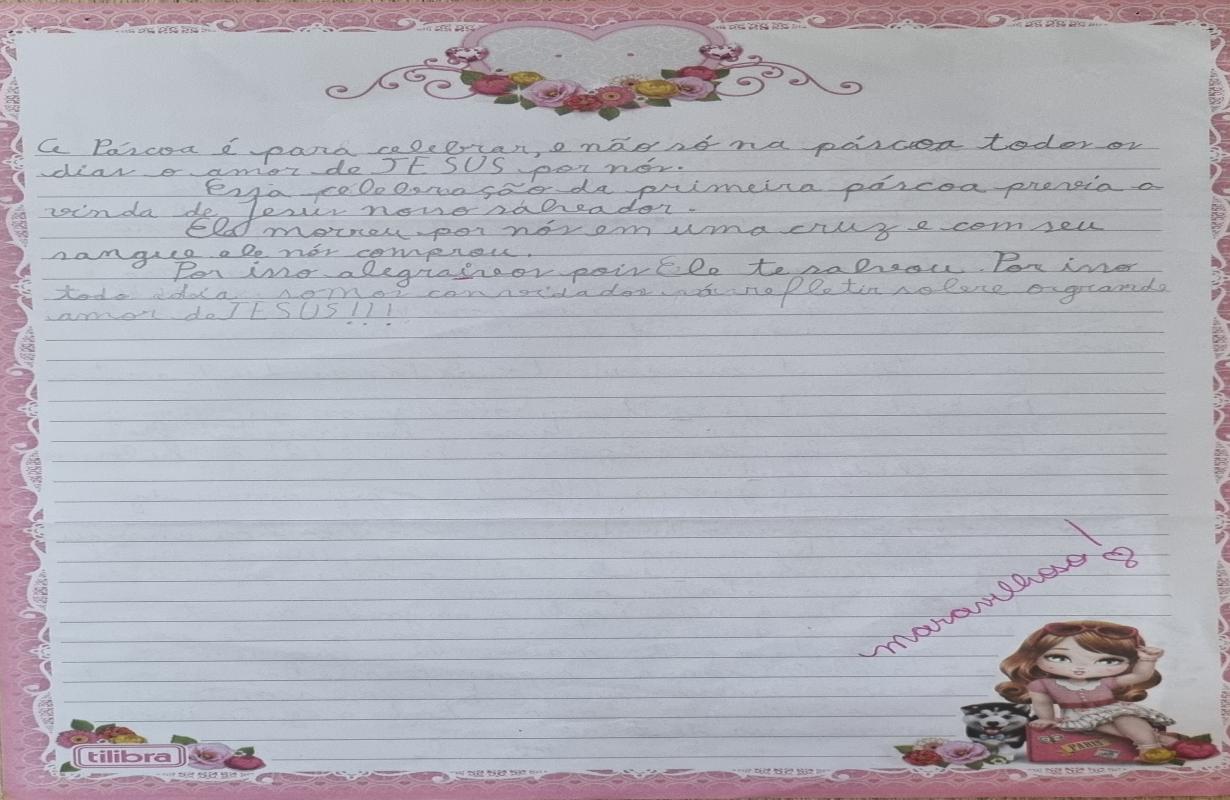 A Páscoa é para celebrar, e não só na páscoa todos os
dias o amor de JESUS por nós.
Essa celebração da primeira páscoa previa a
vinda de Jesus nosso salvador.
Ele morreu por nós em uma cruz e com seu
sangue ele nós comprou.
Por isso alegraivos pois Ele te salvou. Por isso
todo dia somos convidados a refletir sobre o grande
amor de JESUS!!!
maravilhoso!
PARIS
tilibra